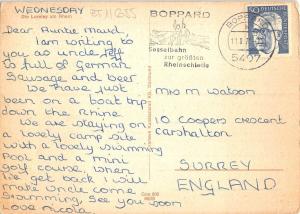 WEDNESDAY
Die Loreley am Rhein
Dear Auntie Maud,
I am writing to
you as uncle Jeff
is full of German
Sausage and beer
We have just
been on a boat trip
down the Rhine
We are staying on
a lovely camp site
with a lovely swimming
Pool and a mini
golf course, when
we get back I will
make uncle come
Swimming, see you
soon love nicola
BOPPARD
Sesselbahn
zur größten
Rheinschleife
BOPPARD
5407
50
DEUTSCHE BUNDESPOST
Mrs M
10 Coopers crescent
carshalton
SURREY
ENGLAND